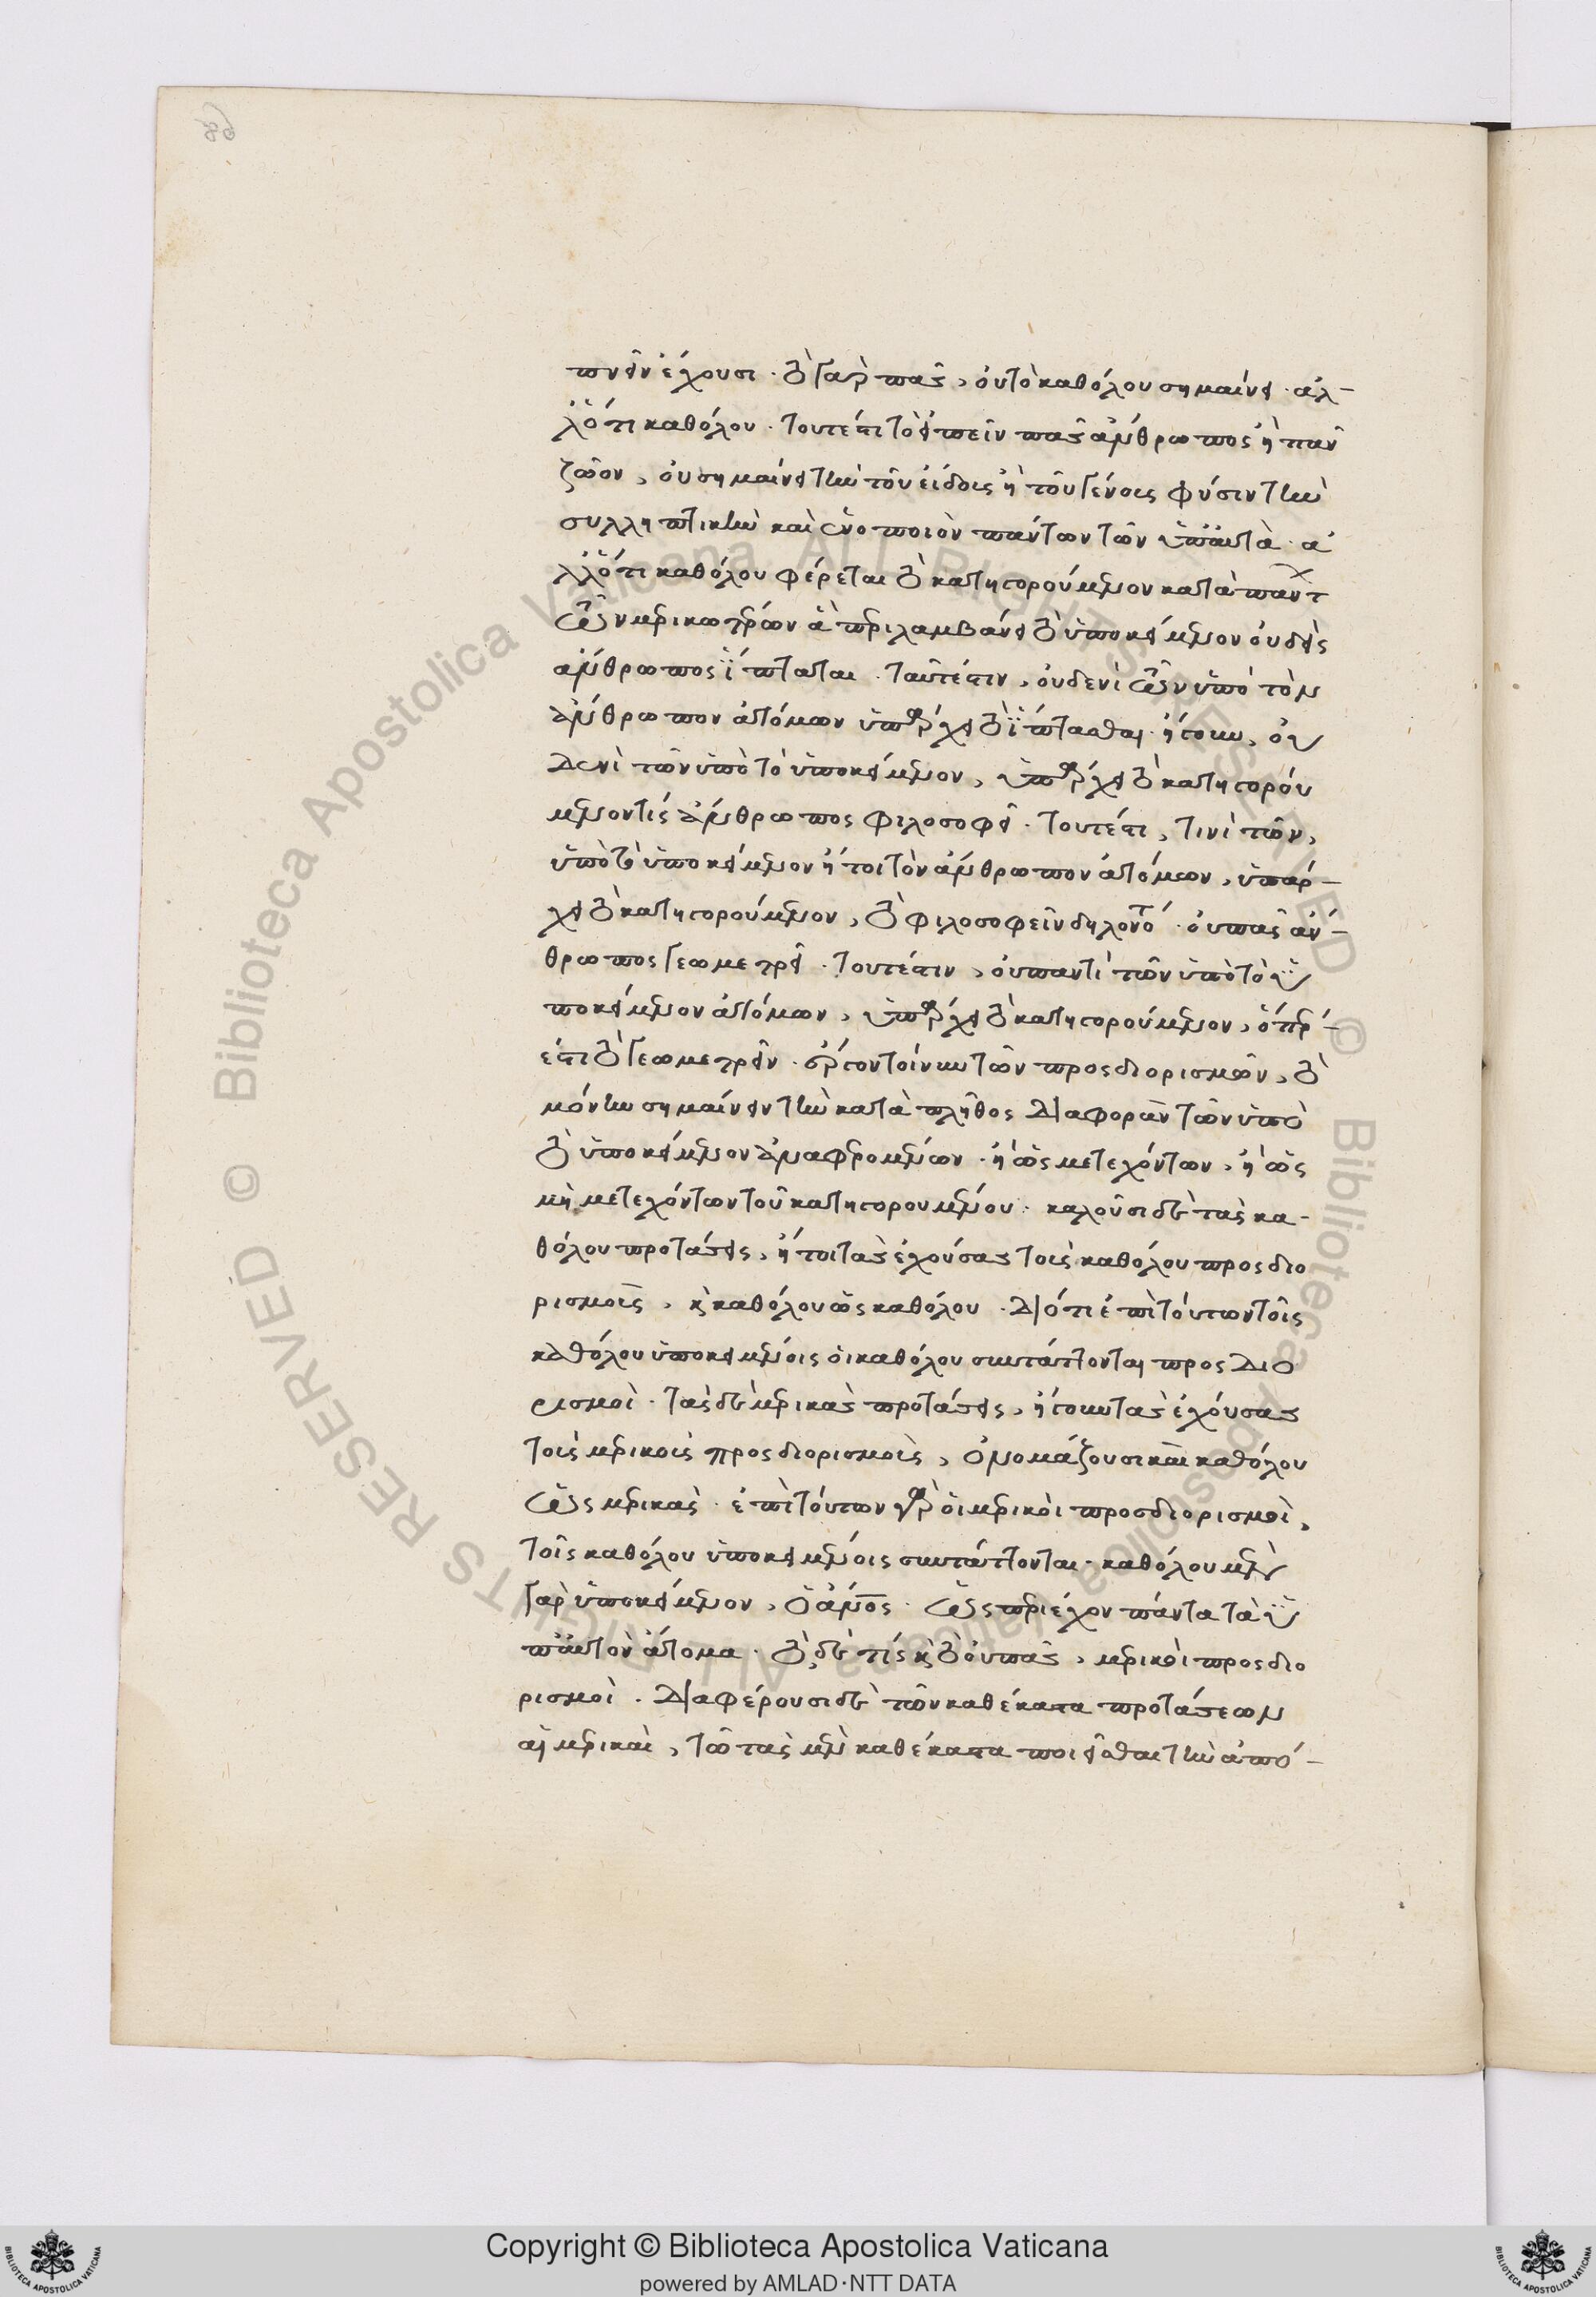 πονεῖν ἔχουσι. τὸ γὰρ πᾶς, οὐ τὸ καθόλου σημαίνει. ἀλ-
λ' ὅτι καθόλου. τουτέστι τὸ εἰπεῖν πᾶς ἄνθρωπος ἢ πᾶν
ζῶον, οὐ σημαίνει τὴν τοῦ εἴδους ἢ τοῦ γένους φύσιν τὴν
συλληπτικὴν καὶ ἑνοποιὸν πάντων τῶν ὑπ' αὐτά. ἀ
λλ' ὅτι καθόλου φέρεται τὸ κατηγορούμενον κατὰ πάντ
ων μερικωτέρων ἃ περιλαμβάνει τὸ ὑποκείμενον οὐδεὶς
ἄνθρωπος ἵπταται. ταυτέστιν, οὐδενὶ τῶν ὑπὸ τὸν
ἄνθρωπον ἀτόμων ὑπάρχει τὸ ἵπτασθαι. ἤγουν, οὐ
δενὶ τῶν ὑπὸ τὸ ὑποκείμενον, ὑπάρχει τὸ κατηγορού
μενον τίς ἄνθρωπος φιλοσοφεῖ. τουτέστι, τινὶ τῶν,
ὑπὸ τὸ ὑποκείμενον ἤτοι τὸν ἄνθρωπον ἀτόμων, ὑπάρ-
χει τὸ κατηγορούμενον, τὸ φιλοσοφεῖν δηλονότι. οὐ πᾶς ἄν-
θρωπος γεωμετρεῖ. τουτέστιν, οὐ παντὶ τῶν ὑπὸ τὸ ὑ
ποκείμενον ἀτόμων, ὑπάρχει τὸ κατηγορούμενον, ὅπερ
ἐστὶ τὸ γεωμετρεῖν. ἔργον τοίνυν τῶν προσδιορισμῶν, τὸ
μόνην σημαίνειν τὴν κατὰ πλῆθος διαφορὰν τῶν ὑπὸ
τὸ ὑποκείμενον ἀναφερομένων. ἢ ὡς μετεχόντων, ἢ ὡς
μὴ μετεχόντων τοῦ κατηγορουμένου. καλοῦσι δὲ τὰς κα-
θόλου προτάσεις, ἤτοι τὰς ἐχούσας τοὺς καθόλου προσδιο
ρισμοὺς, καὶ καθόλου ὡς καθόλου. διότι ἐπὶ τούτων τοῖς
καθόλου ὑποκειμένοις οἱ καθόλου συντάττονται προσδιο
ρισμοί. τὰς δὲ μερικὰς προτάσεις, ἤγουν τὰς ἐχούσας
τοὺς μερικοὺς προσδιορισμοὺς, ὀνομάζουσι καὶ καθόλου
ὡς μερικάς. ἐπὶ τούτων γὰρ οἱ μερικοὶ προσδιορισμοὶ,
τοῖς καθόλου ὑποκειμένοις συντάττονται. καθόλου μὲν
γὰρ ὑποκείμενον, ὁ ἄνος. ὡς περιέχον πάντα τὰ ὑ
π' αὐτὸν ἄτομα. τὸ δὲ τίς καὶ τὸ οὐ πᾶς, μερικοὶ προσδιο
ρισμοί. διαφέρουσι δὲ τῶν καθέκαστα προτάσεων
αἱ μερικαὶ, τῶ τὰς μὲν καθέκαστα ποιεῖσθαι τὴν ἀπό-